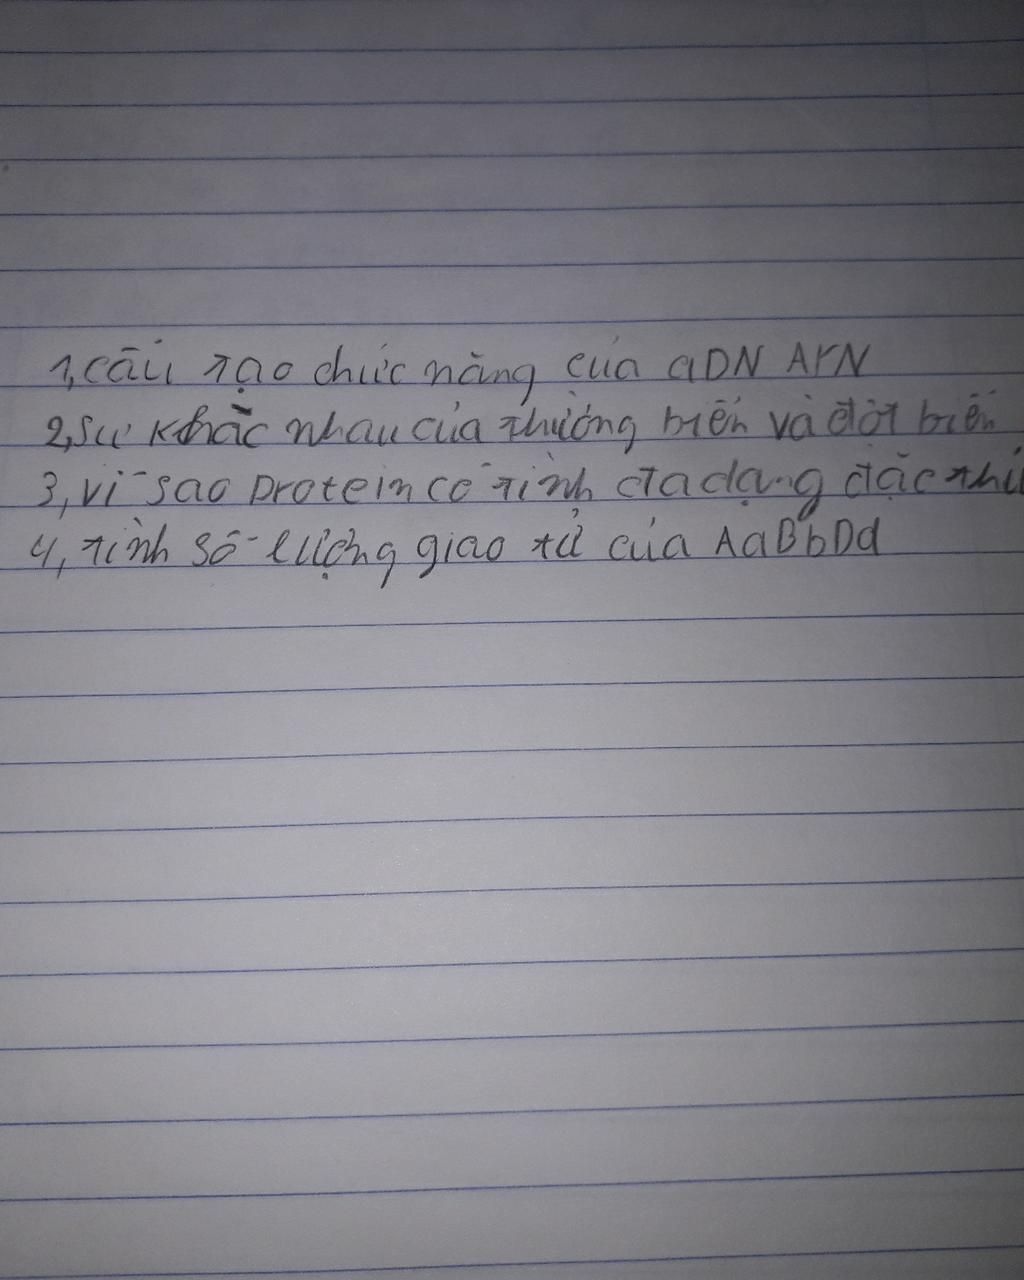 1, cấu tạo chức năng của aDN ARN
2, sự khác nhau của thường biến và đột biến
3, vì sao protein có tính đa dạng đặc thù
4, tính số lượng giao tử của AaBbDd